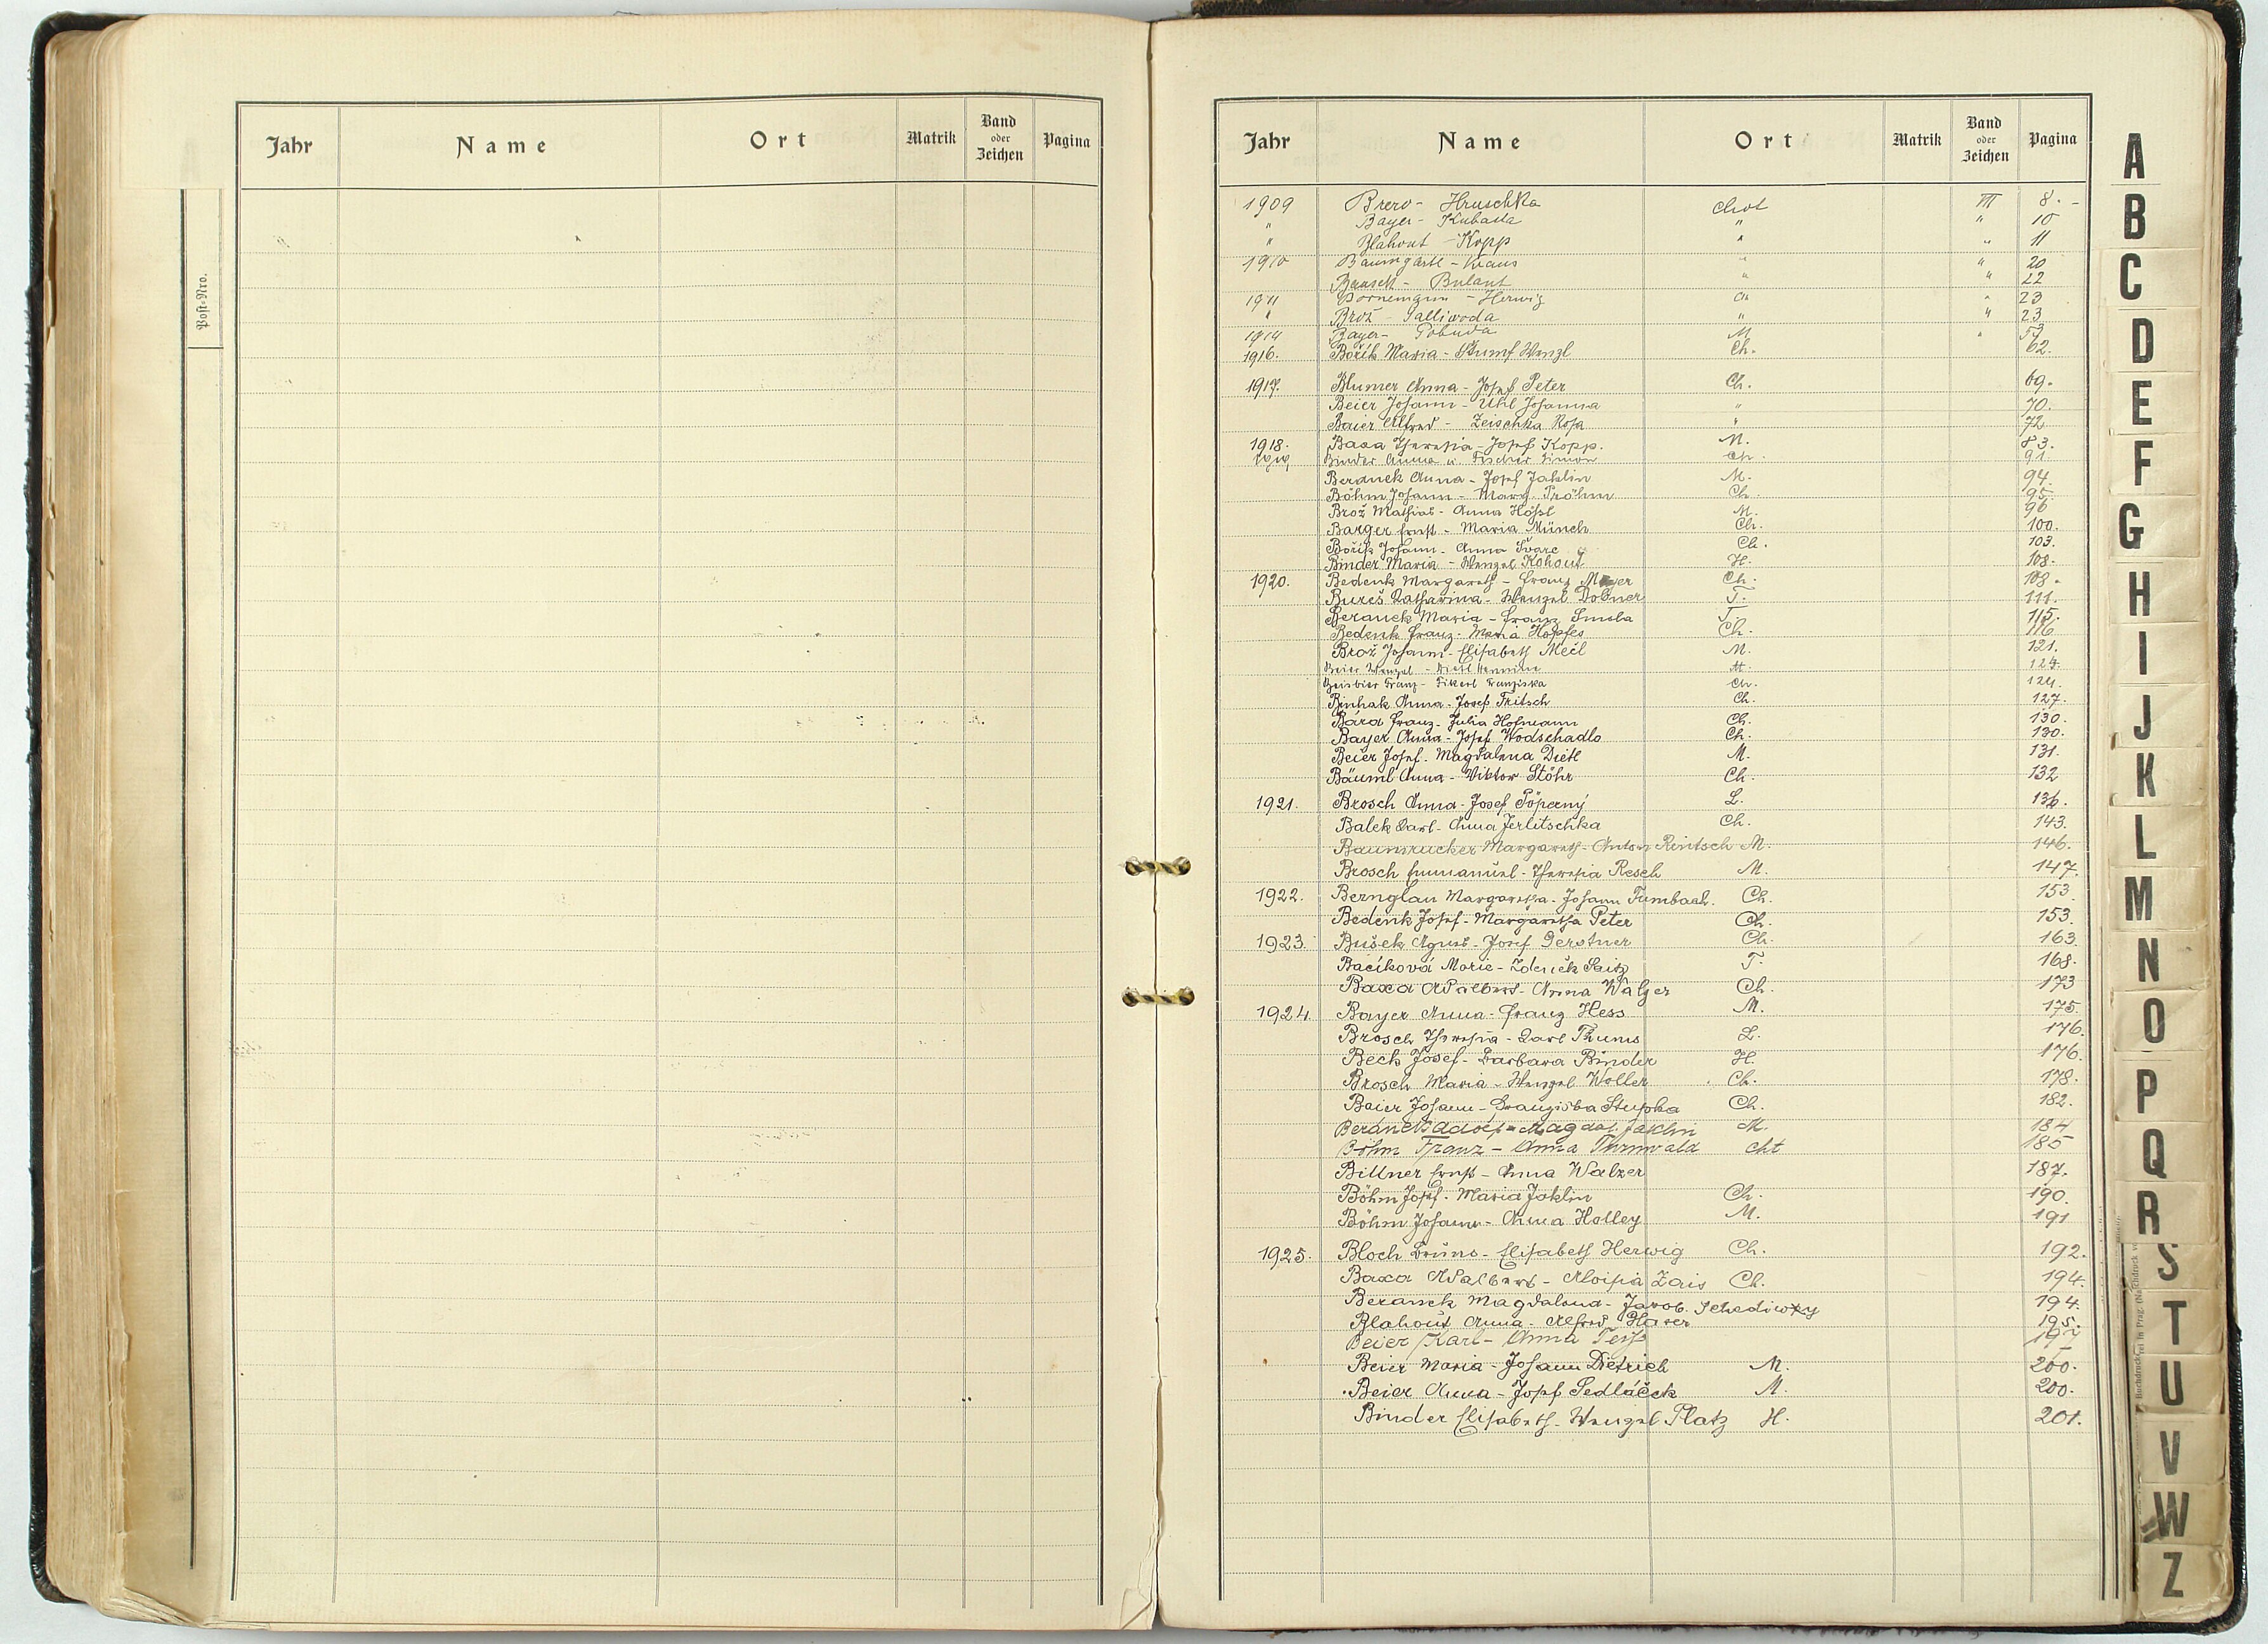 Jahr Name Ort Matrik Band oder Zeichen Pagina
Post-Nro.
Jahr Name Ort Matrik Band oder Zeichen Pagina
1909 Hruschka Chot III 8. -
" Bayer - Kubasta " " 10
" Blahout - Kopp " " 11
1910 Baumgartl - Kraus " " 20
Bulant " " 22
1911 Bornemann - Herwig Ch " 23
" Brož - Salliwoda " " 23
1914 Bayer - Pobuda M "
1916. Bořik Maria - Stumf Wenzl Ch. 62.
1917. Blumer Anna - Josef Peter Ch. 69.
Beier Johann - Uhl Johanna " 70.
Baier Alfred - Zeischka Rosa " 72
1918. Baxa Theresia - Josef Kopp. M. 83.
Binder Anna u. Fischer Simon Ch. 91.
Beranek Anna - Josef Jaklin M. 94.
Böhm Johann - Marg. Pröhm Ch. 95.
Brož Mathias - Anna Hößl M. 96
Barger Ernst - Maria Münch Ch. 100.
Bořik Johann - Anna Švarc Ch. 103.
Binder Maria - Wenzel Kohout H. 108.
1920. Bedenk Margareth - Franz Mayer Ch. 108.
Bureš Katharina - Wenzel Dobner T. 111.
Beranek Maria - Franz Smola T. 115.
Bedenk Franz - Maria Hopfes Ch. 116.
Brož Johann - Elisabeth Mečl M. 121.
Beier Wenzel - Dietl Hermine M. 124.
Beisbier Franz - Fikerl Franziska Ch. 124.
Anna - Josef Fritsch Ch. 127.
Bára Franz - Julia Hofmann Ch. 130.
Bayer Anna - Josef Wodschadlo Ch. 130.
Beier Josef - Magdalena Dietl M. 131.
Bäuml Anna - Viktor Stöhr Ch. 132
1921. Brosch Anna - Josef Pöperný L. 136.
Balek Karl - Anna Jerlitschka Ch. 143.
Baumrucker Margareth - Anton Rintsch M. 146.
Brosch Emmanuel - Theresia Resch M. 147.
1922. Bernglau Margaretha - Johann Fumbach. Ch. 153
Bedenk Josef - Margaretha Peter Ch. 153.
1923. Bušek Agnes - Josef Gerstner Ch. 163.
Bacíková Marie - Zdeněk Saitz T. 168.
Baxa Adalbert - Anna Walzer Ch. 173
1924. Bayer Anna - Franz Hess M. 175.
Brosch Theresia - Karl Thums L. 176.
Beck Josef - Barbara Binder H. 176.
Brosch Maria - Wenzel Woller Ch. 178.
Baier Johann - Franziska Stupka Ch. 182.
Beranek Adolf - Magdal. Jaklin M. 184
Böhm Franz - Anna Thurnwald Cht 185
Billner Ernst - Anna Walzer 187.
Böhm Josef - Maria Jaklin Ch. 190.
Böhm Johann - Anna Holley M. 191
1925. Bloch Bruno - Elisabeth Herwig Ch. 192.
Baxa Adalbert - Aloisia Zais Ch. 194.
Beranek Magdalena - Jakob. Schediwy 194.
Blahout Anna - Alfred 195.
Beier Karl - Anna 197
Beier Maria - Johann Dietrich M. 200.
Beier Anna - Josef Sedláček M. 200.
Binder Elisabeth - Wenzel Platz H. 201.
A
B
C
D
E
F
G
H
I
J
K
L
M
N
O
P
Q
R
S
T
U
V
W
Z